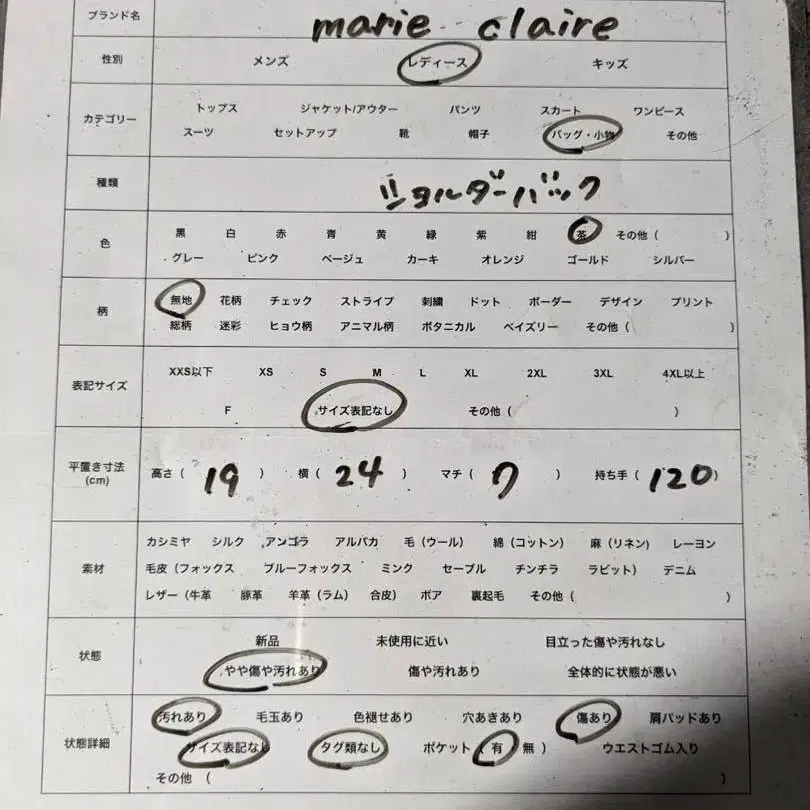 ブランド名 marie claire
性別 メンズ レディース キッズ
カテゴリー トップス ジャケット/アウター パンツ スカート ワンピース
スーツ セットアップ 靴 帽子 バッグ・小物 その他
種類 ショルダーバック
色 黒 白 赤 青 黄 緑 紫 紺 茶 その他 ( )
グレー ピンク ベージュ カーキ オレンジ ゴールド シルバー
柄 無地 花柄 チェック ストライプ 刺繍 ドット ボーダー デザイン プリント
総柄 迷彩 ヒョウ柄 アニマル柄 ボタニカル ペイズリー その他 ( )
表記サイズ XXS以下 XS S M L XL 2XL 3XL 4XL以上
F サイズ表記なし その他 ( )
平置き寸法 (cm) 高さ ( 19 ) 横 ( 24 ) マチ ( 7 ) 持ち手 ( 120 )
カシミヤ シルク アンゴラ アルパカ 毛 (ウール) 綿 (コットン) 麻 (リネン) レーヨン
素材 毛皮 (フォックス ブルーフォックス ミンク セーブル チンチラ ラビット) デニム
レザー (牛革 豚革 羊革 (ラム) 合皮) ボア 裏起毛 その他 ( )
状態 新品 未使用に近い 目立った傷や汚れなし
やや傷や汚れあり 傷や汚れあり 全体的に状態が悪い
状態詳細 汚れあり 毛玉あり 色褪せあり 穴あきあり 傷あり 肩パッドあり
サイズ表記なし タグ類なし ポケット ( 有・無 ) ウエストゴム入り
その他 ( )